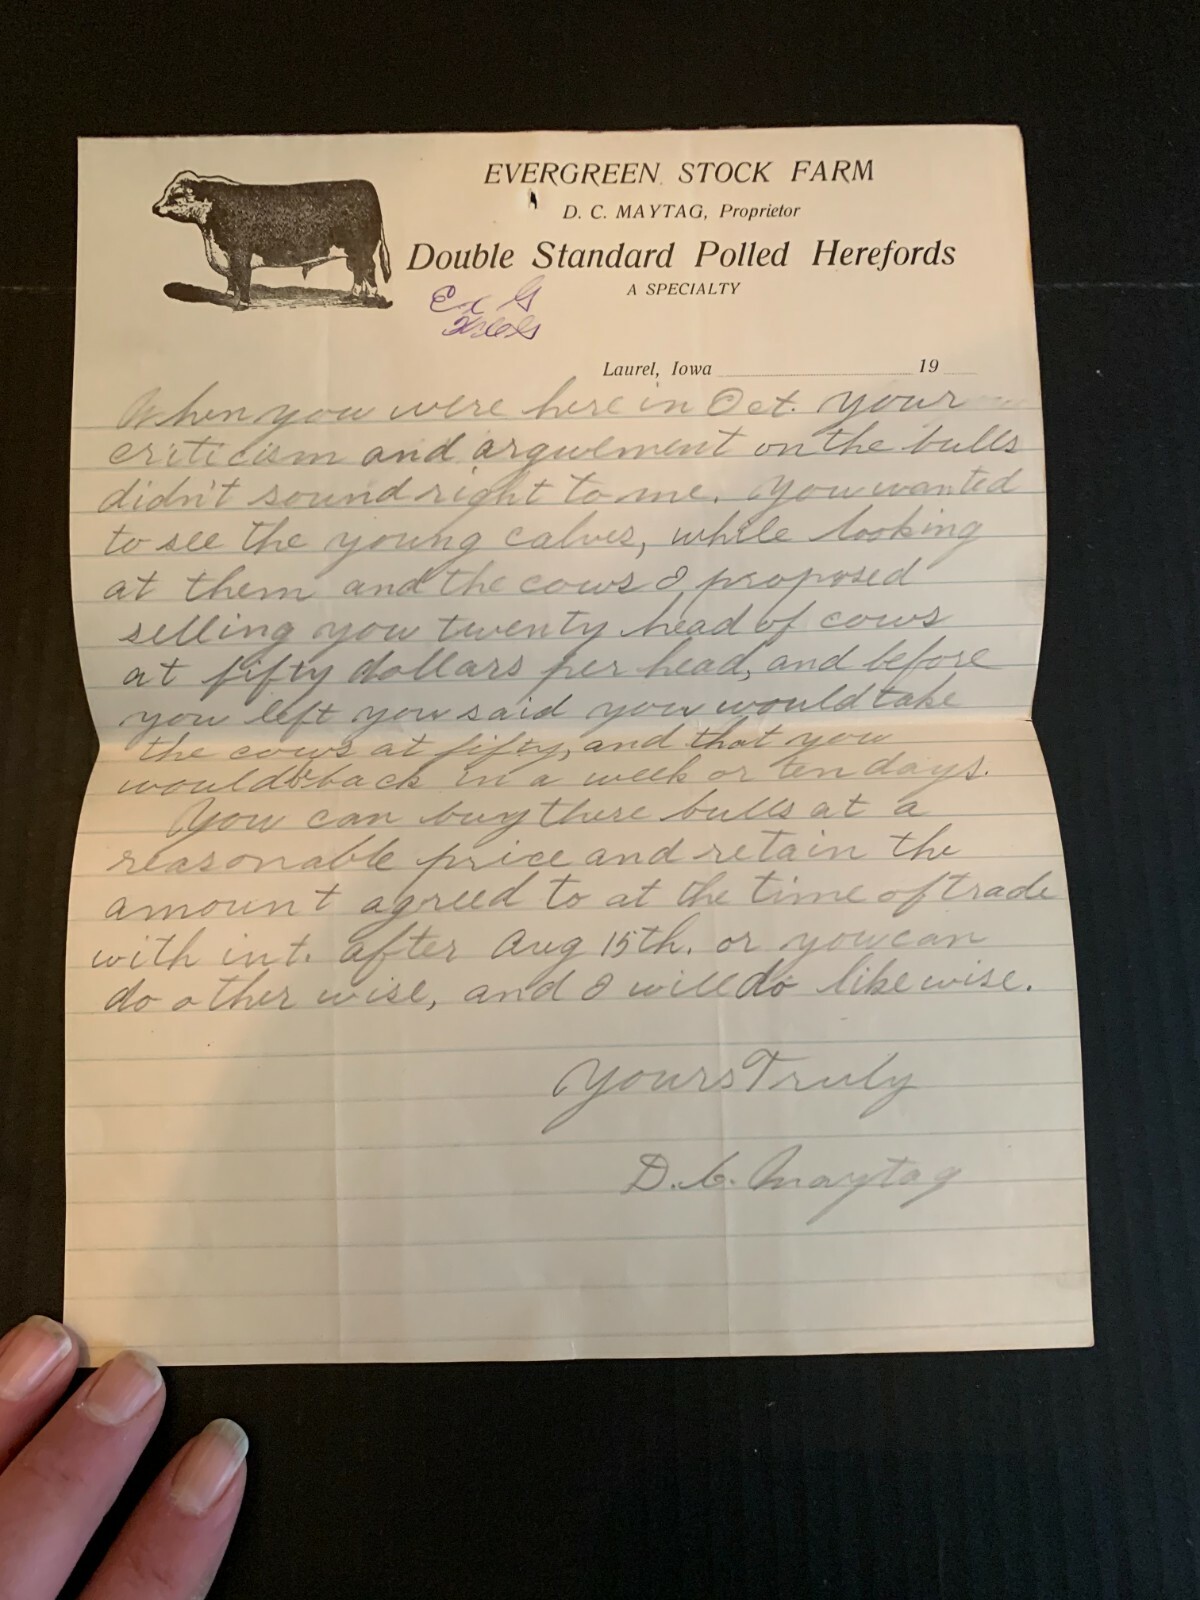 EVERGREEN STOCK FARM
D. C. MAYTAG, Proprietor
Double Standard Polled Herefords
A SPECIALTY
Ex G
Laurel, Iowa 19
When you were here in Oct. your
criticism and arguement on the bulls
didn't sound right to me. You wanted
to see the young calves, while looking
at them and the cows I proposed
selling you twenty head of cows
at fifty dollars per head, and before
you left you said you would take
the cows at fifty, and that you
would be back in a week or ten days.
You can buy these bulls at a
reasonable price and retain the
amount agreed to at the time of trade
with int. after Aug 15th. or you can
do other wise, and I will do likewise.
Yours Truly
D. C. Maytag